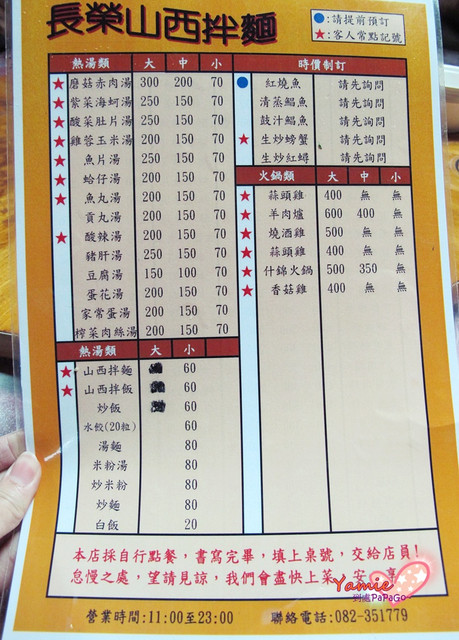 長榮山西拌麵
●:請提前預訂
★:客人常點記號
熱湯類 大 中 小
★ 磨菇赤肉湯 300 200 70
★ 紫菜海蚵湯 250 150 70
★ 酸菜肚片湯 250 150 70
★ 雞蓉玉米湯 200 150 70
★ 魚片湯 250 150 70
★ 蛤仔湯 200 150 70
★ 魚丸湯 200 150 70
貢丸湯 200 150 70
★ 酸辣湯 200 150 70
豬肝湯 250 150 70
豆腐湯 150 100 70
蛋花湯 200 150 70
家常蛋湯 200 150 70
榨菜肉絲湯 200 150 70
熱湯類 大 小
★ 山西拌麵 60
★ 山西拌飯 60
炒飯 60
水餃(20粒) 60
湯麵 80
米粉湯 80
炒米粉 80
炒麵 80
白飯 20
時價制訂
● 紅燒魚 請先詢問
清蒸鯧魚 請先詢問
鼓汁鯧魚 請先詢問
★ 生炒螃蟹 請先詢問
生炒紅蟳 請先詢問
火鍋類 大 中 小
★ 蒜頭雞 400 無 無
★ 羊肉爐 600 400 無
★ 燒酒雞 500 無 無
★ 蒜頭雞 400 無 無
★ 什錦火鍋 500 350 無
★ 香菇雞 400 無 無
本店採自行點餐，書寫完畢，填上桌號，交給店員!
怠慢之處，望請見諒，我們會盡快上菜。安
Yamie
到處PaPaGo
營業時間:11:00至23:00 聯絡電話:082-351779